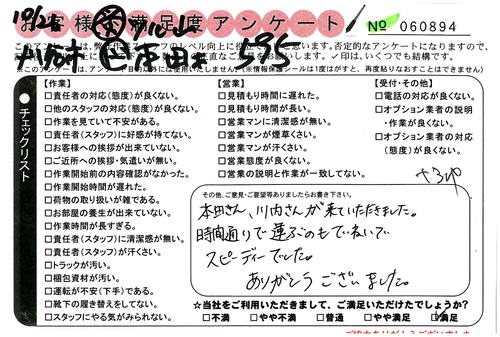 お客様満足度アンケート
No 060894
10/28
【作業】
□責任者の対応(態度)が良くない。
□他のスタッフの対応(態度)が良くない。
□作業を見ていて不安がある。
□責任者(スタッフ)に好感が持てない。
□お客様への挨拶が出来ていない。
□ご近所への挨拶・気遣いが無い。
□作業開始前の内容確認がなかった。
□作業開始時間が遅れた。
□荷物の取り扱いが雑である。
□お部屋の養生が出来ていない。
□作業時間が長すぎる。
□責任者(スタッフ)に清潔感が無い。
□責任者(スタッフ)が汗くさい。
□トラックが汚い。
□梱包資材が汚い。
□運転が不安(下手)である。
□靴下の履き替えをしてない。
□スタッフにやる気がみられない。
チェックリスト
【営業】
□見積もり時間に遅れた。
□見積もり時間が長い。
□営業マンに清潔感が無い。
□営業マンが煙草くさい。
□営業マンが汗くさい。
□営業態度が良くない。
□営業の説明と作業が一致してない。
【受付・その他】
□電話の対応が良くない。
□オプション業者の説明
・作業が良くない。
□オプション業者の対応
(態度)が良くない。
その他、ご意見・ご要望等ありましたらお書き下さい。
本田さん、川内さんが来ていただきました。
時間通りで運ぶのもていねいで
スピーディーでした。
ありがとうございました。
☆当社をご利用いただきまして、ご満足いただけたでしょうか?
□不満 □やや不満 □普通 □やや満足 □満足